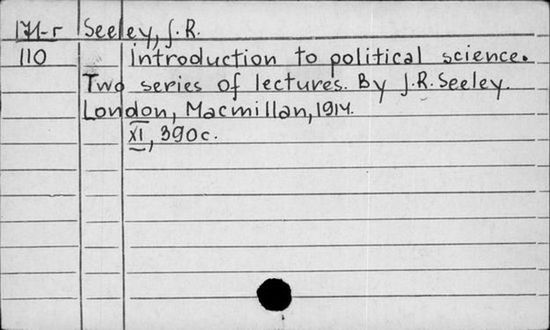 171-r Seeley, J.R.
110 Introduction to political science.
Two series of lectures. By J.R. Seeley.
London, Macmillan, 1914.
XI, 390c.